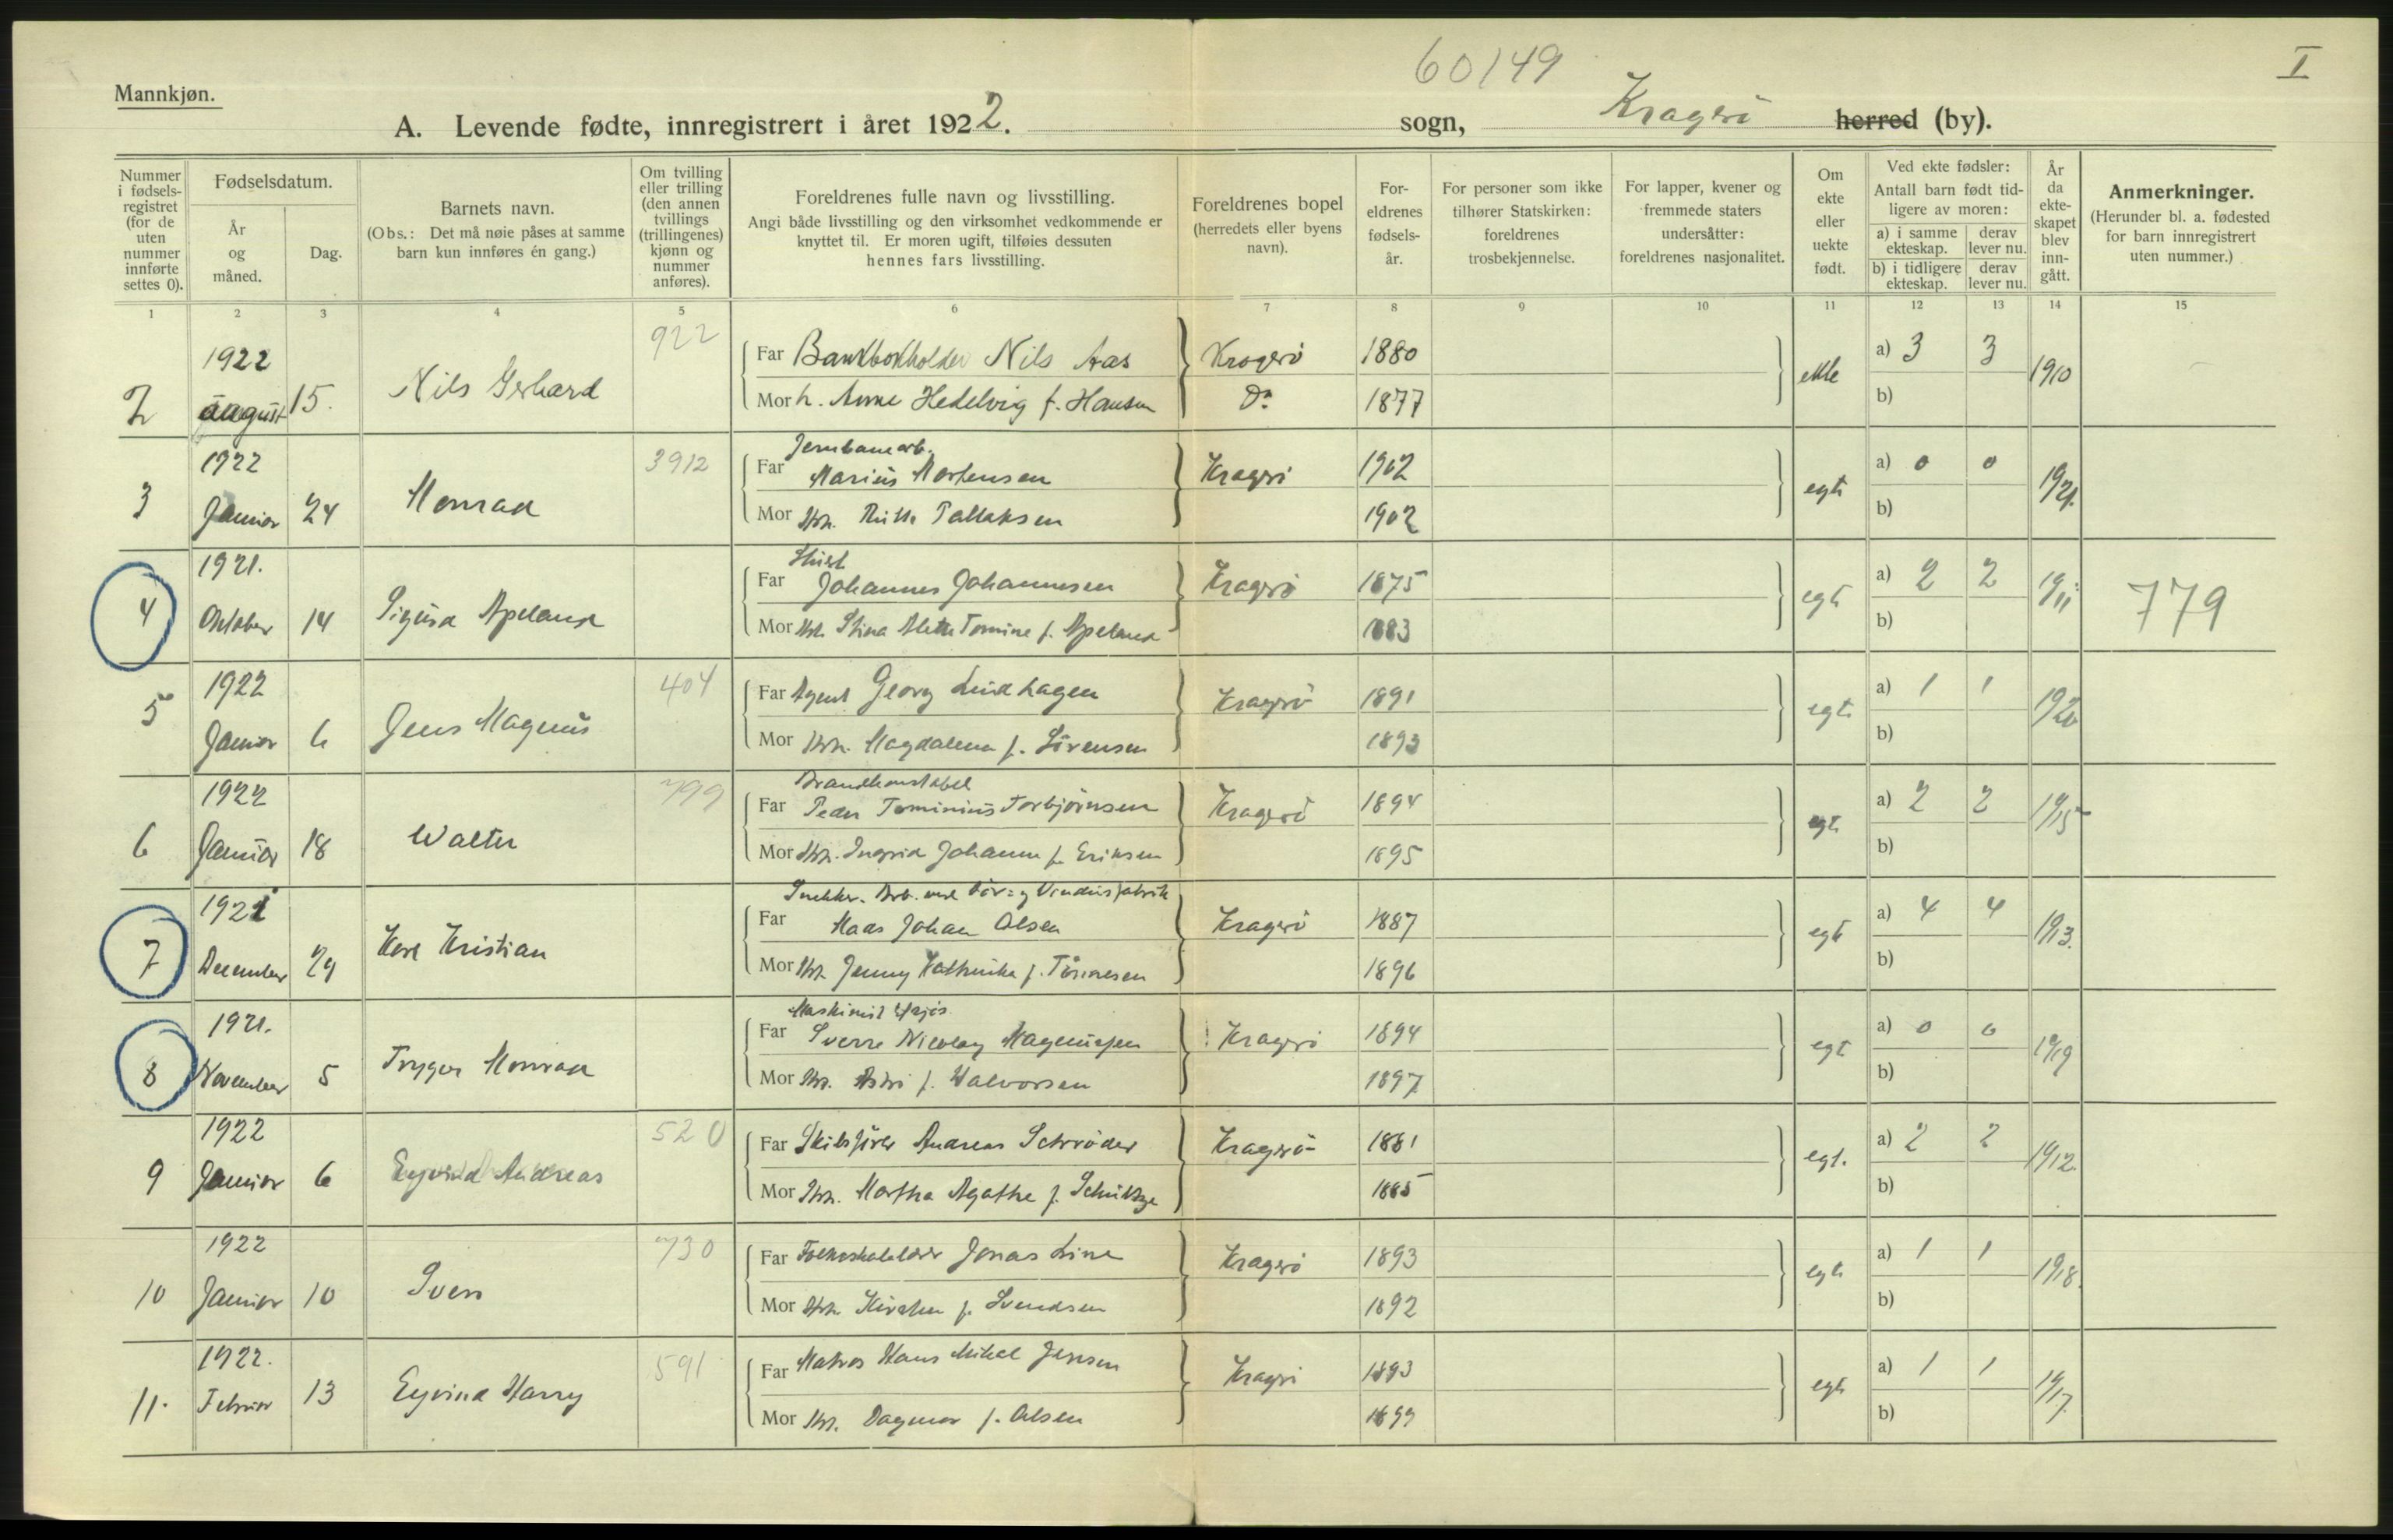 60149
I
Mannkjøn.
A. Levende fødte, innregistrert i året 1922. sogn, Kragerö herred (by).
Nummer i fødselsregistret (for de uten nummer innførte settes 0).
Fødselsdatum.
År og måned.
Dag.
Barnets navn.
(Obs.: Det må nøie påses at samme barn kun innføres én gang.)
Om tvilling eller trilling (den annen tvillings (trillingenes) kjønn og nummer anføres).
Foreldrenes fulle navn og livsstilling.
Angi både livsstilling og den virksomhet vedkommende er knyttet til. Er moren ugift, tilføies dessuten hennes fars livsstilling.
Foreldrenes bopel (herredets eller byens navn).
Foreldrenes fødselsår.
For personer som ikke tilhører Statskirken: foreldrenes trosbekjennelse.
For lapper, kvener og fremmede staters undersåtter: foreldrenes nasjonalitet.
Om ekte eller uekte født.
Ved ekte fødsler: Antall barn født tidligere av moren:
a) i samme ekteskap. derav lever nu.
b) i tidligere ekteskap. derav lever nu.
År da ekteskapet blev inngått.
Anmerkninger.
(Herunder bl. a. fødested for barn innregistrert uten nummer.)
1 2 3 4 5 6 7 8 9 10 11 12 13 14 15
2 1922 august 15. Nils Gerhard 922
Far Bankbokholder Nils Aas Kragerö 1880 ekte a) 3 3 1910
Mor h. Anne Hedelvig f. Hansen Do 1877 b)
3 1922 Januar 24 Monrad 3912
Jernbanearb.
Far Marius Mortensen Kragerö 1902 egte a) 0 0 1921.
Mor Hr. Tallaksen 1902 b)
4 1921. Oktober 14 Sigurd Apeland
Far Johannes Johannesen Kragerö 1875 egte a) 2 2 1911 779
Mor Stina Tomine f. Apeland 1883 b)
5 1922 Januar 6 Jens Magnus 404
Far Agent Georg Lindhagen Kragerö 1891 egte a) 1 1 1920
Mor Hr. Magdalena f. Sörensen 1893 b)
6 1922 Januar 18 Walter 799
Brandkonstabel
Far Peder Tominius Torbjörnsen Kragerö 1894 egte a) 2 2 1915
Mor Hr. Ingrid Johanne f. Eriksen 1895 b)
7 1921 December 29 Karl Kristian
Snekker. Arb. ved Dör- og Vindusfabrik
Far Johan Olsen Kragerö 1887 egte a) 4 4 1913.
Mor Hr. Jenny Kathinka f. Tönnesen 1896 b)
8 1921. November 5 Trygve Monrad
Maskinist
Far Sverre Nicolay Magnussen Kragerö 1894 egte a) 0 0 1919
Mor Hr. f. Halvorsen 1897 b)
9 1922 Januar 6 Eyvind Andreas 520
Far Skibsförer Andreas Schröder Kragerö 1881 egt. a) 2 2 1912.
Mor Hr. Martha Agathe f. 1885 b)
10 1922 Januar 10 Sven 730
Far Folkeskolelærer Jonas Line Kragerö 1893 egte a) 1 1 1918.
Mor Hr. Kirsten f. Svendsen 1892 b)
11. 1922. Februar 13 Eyvind Harry 591
Far Matros Hans Mikal Jensen Kragerö 1893 egte a) 1 1 1917.
Mor Hr. Dagmar f. Olsen 1899 b)